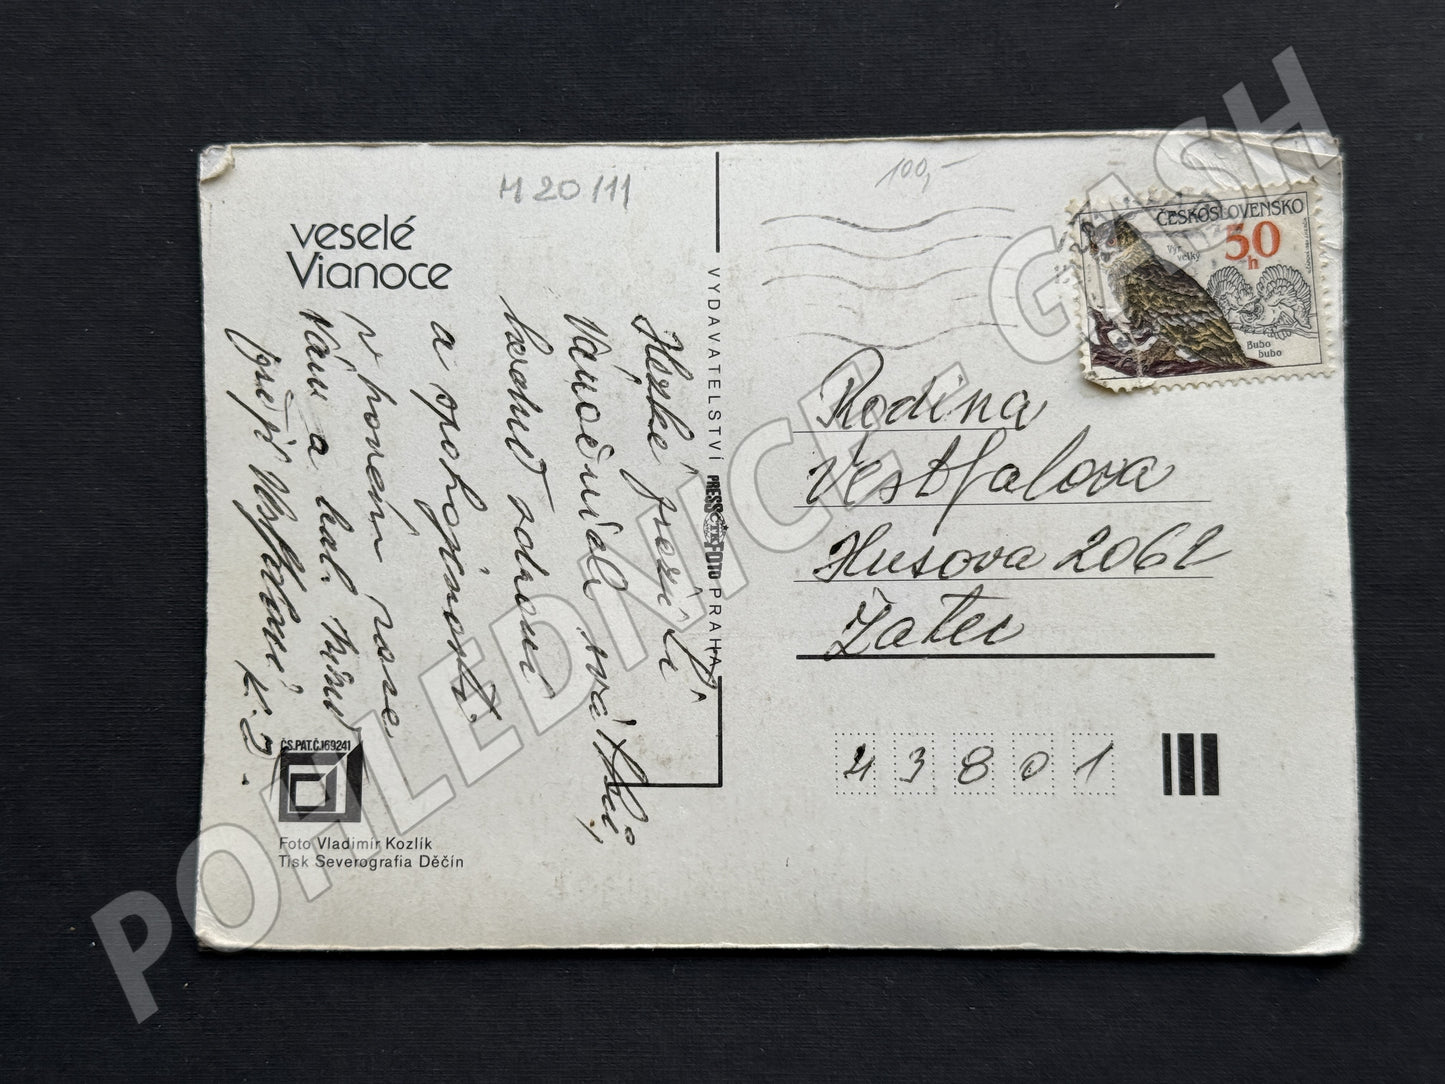 M 20/11
100,-
veselé
Vianoce
Hezké prožití
Vánočních svátků,
hodně zdraví
a spokojenosti
v novém roce
Vám a
přejí Vestfálovi
K. J.
VYDAVATELSTVÍ PRESSFOTO PRAHA
ČTK
ČESKOSLOVENSKO
50
h
Výr
velký
Bubo
bubo
Rodina
Vestfalova
Husova 2062
Žatec
43801
ČS.PAT.Č.169241
Foto Vladimír Kozlík
Tisk Severografia Děčín
POHLEDNICE - GASH